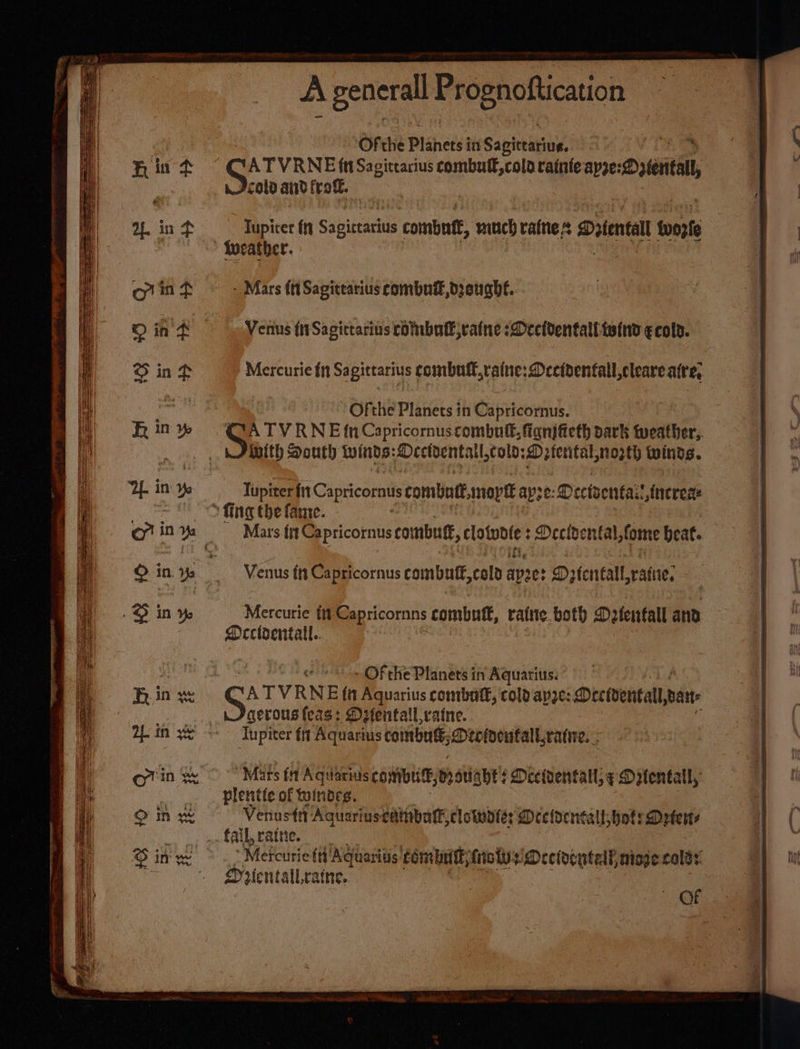 A generall Prognoſtication
Of the Planets in Sagittarius.
♄ in ♐ SATVRNE in Sagittarius combuſt, cold rainie ayre: Orientall,
cold and froſt.
♃ in ♐ Iupiter in Sagittarius combuſt, much raine: Orientall worſe
weather.
♂ in ♐ Mars in Sagittarius combuſt, drought.
♀ in ♐ Venus in Sagittarius combuſt, raine: Occidentall wind & cold.
☿ in ♐ Mercurie in Sagittarius combuſt, raine: Occidentall, cleare aire.
Of the Planets in Capricornus.
♄ in ♑ SATVRNE in Capricornus combuſt, ſignifieth dark weather,
with South winds: Occidentall, cold: Oriental, north winds.
♃ in ♑ Iupiter in Capricornus combuſt, moyſt ayre: Occidentall, increa-
ſing the ſame.
♂ in ♑ Mars in Capricornus combuſt, clowdie: Occidental, ſome heat.
♀ in ♑ Venus in Capricornus combuſt, cold ayre: Orientall, raine.
☿ in ♑ Mercurie in Capricornns combuſt, raine both Orientall and
Occidentall.
Of the Planets in Aquarius.
♄ in ♒ SATVRNE in Aquarius combuſt, cold ayre: Occidentall, dan-
gerous ſeas: Orientall, raine.
♃ in ♒ Iupiter in Aquarius combuſt, Occidentall, raine.
♂ in ♒ Mars in Aquarius combuſt, drought: Occidentall, & Orientall,
plentie of windes.
♀ in ♒ Venus in Aquarius combuſt, clowdie: Occidentall, hot: Orien-
tall, raine.
☿ in ♒ Mercurie in Aquarius combuſt, ſnow: Occidentall, more cold:
Orientall, raine.
Of